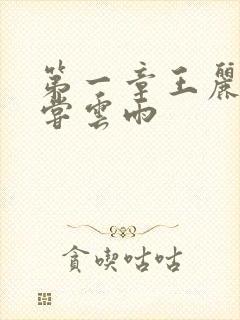 第一章王麗
嘗雲雨
貪喫咕咕